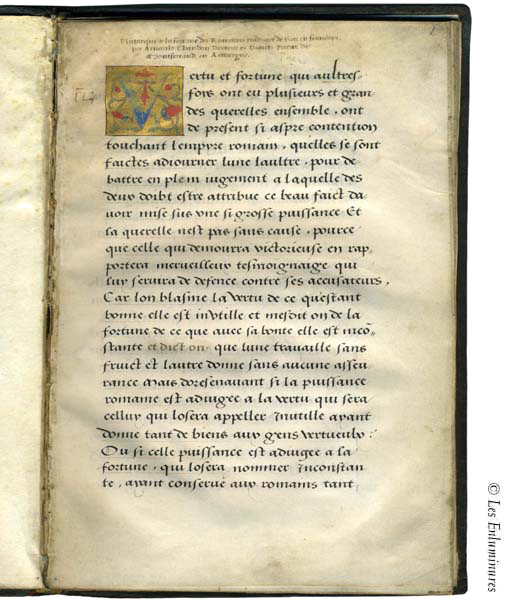 Plutarque de la fortune des Romains traduict de Grec en francoys
par Arnauld Chandon Docteur es Droictz Prieur de
de Montferrand en Auvergne.
1
Vertu et fortune qui aultres-
fors ont eu plusieurs et gran
des querelles ensemble, ont
de present si aspre contention
touchant lempyre romain, quelles se sont
faictes adiourner lune laultre, pour de
battre en plein iugement a laquelle des
deux doibt estre attribue ce beau faict da
voir mise sus vne si grosse puissance Et
la querelle nest pas sans cause, pource
que celle qui demourra victorieuse en rap
portera merveilleux tesmoignaige qui
luy servira de defence contre ses accusateurs,
Car lon blasme la vertu de ce questant
bonne elle est invtille et mesdit on de la
fortune de ce que avec sa bonte elle est incō
stante et dict on, que lune travaille sans
fruict et lautre donne sans aucune asseu
rance Mais doresenavant si la puissance
romaine est adiugee a la vertu qui sera
celluy qui losera appeller Inutille ayant
donne tant de biens aux gens vertueulx?
Ou si celle puissance est adiugee a la
fortune, qui losera nommer Inconstan
te, ayant conserve aux romains tant
© Les Enluminures